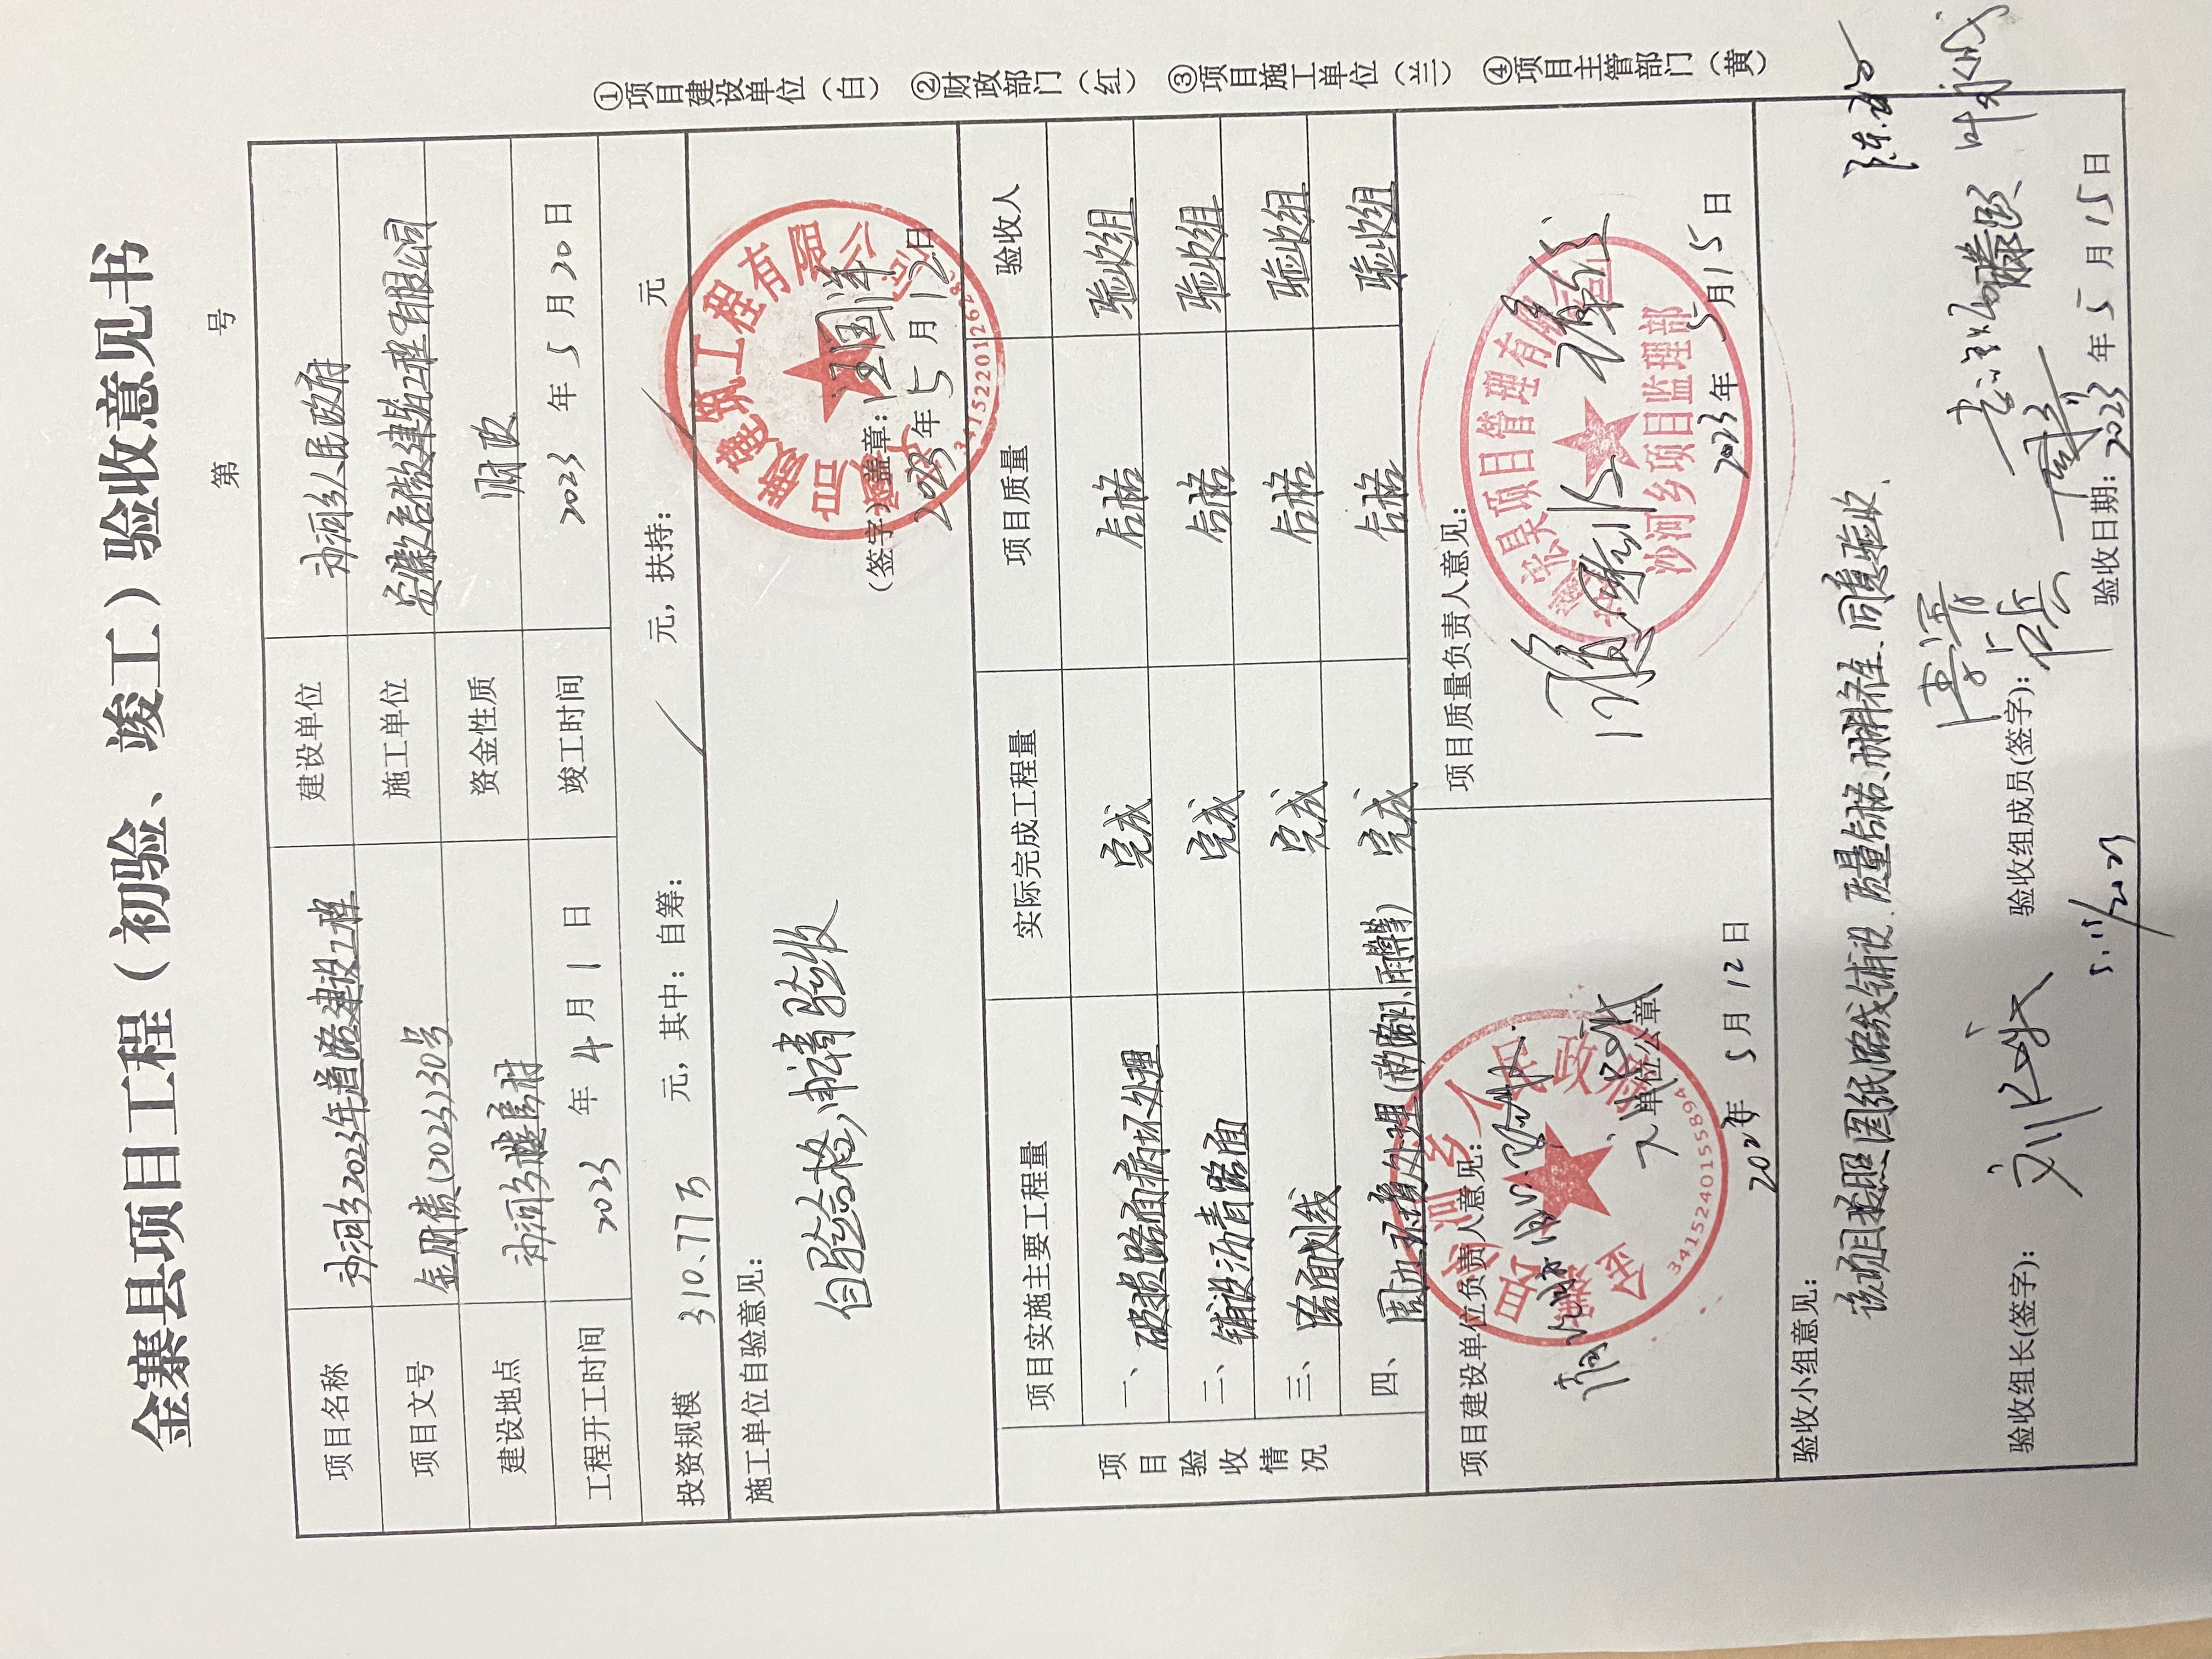 金寨县项目工程（初验、竣工）验收意见书
第 号
项目名称 沙河乡2023年道路建设工程 建设单位 沙河乡人民政府
项目文号 金财债(2023)30号 施工单位 安徽启傲建筑工程有限公司
建设地点 沙河乡楼房村 资金性质 财政
工程开工时间 2023 年 4 月 1 日 竣工时间 2023 年 5 月 20 日
投资规模 310.77万 元，其中：自筹： 元，扶持： 元
施工单位自验意见：
自验合格,申请验收
(签字)盖章：
2023年5月12日
项目验收情况
项目实施主要工程量 实际完成工程量 项目质量 验收人
一、破损路面病坏处理 完成 合格 验收组
二、铺设沥青路面 完成 合格 验收组
三、路面划线 完成 合格 验收组
四、周边环境处理 完成 合格 验收组
项目建设单位负责人意见：
单位公章
5月12日
项目质量负责人意见：
2023年5月15日
沙河乡项目监理部
3415240155894
验收小组意见：
该项目按照图纸路线铺设、质量合格、材料齐全、同意验收、
验收组长(签字)：
验收组成员(签字)：
验收日期：2023年5月15日
①项目建设单位（白）
②财政部门（红）
③项目施工单位（兰）
④项目主管部门（黄）